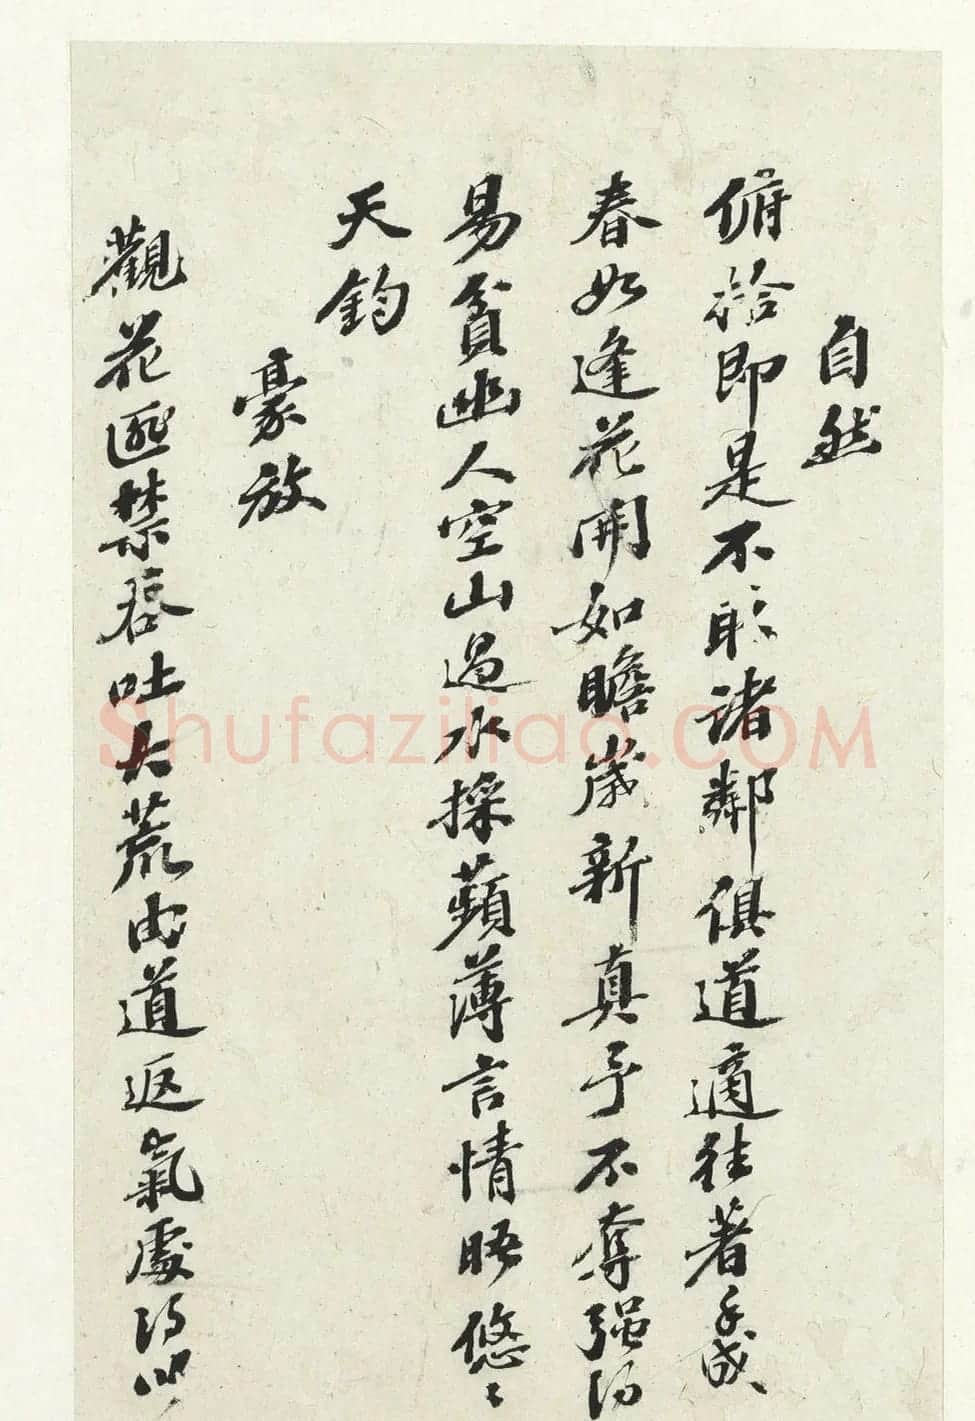 自然
俯拾即是不取諸鄰俱道適往著手成
春如逢花開如瞻歲新真予不奪強得
易貧幽人空山過水採蘋薄言情晤悠〻
天鈞
豪放
觀花匪禁吞吐大荒由道返氣處得以
Shufaziliao.COM